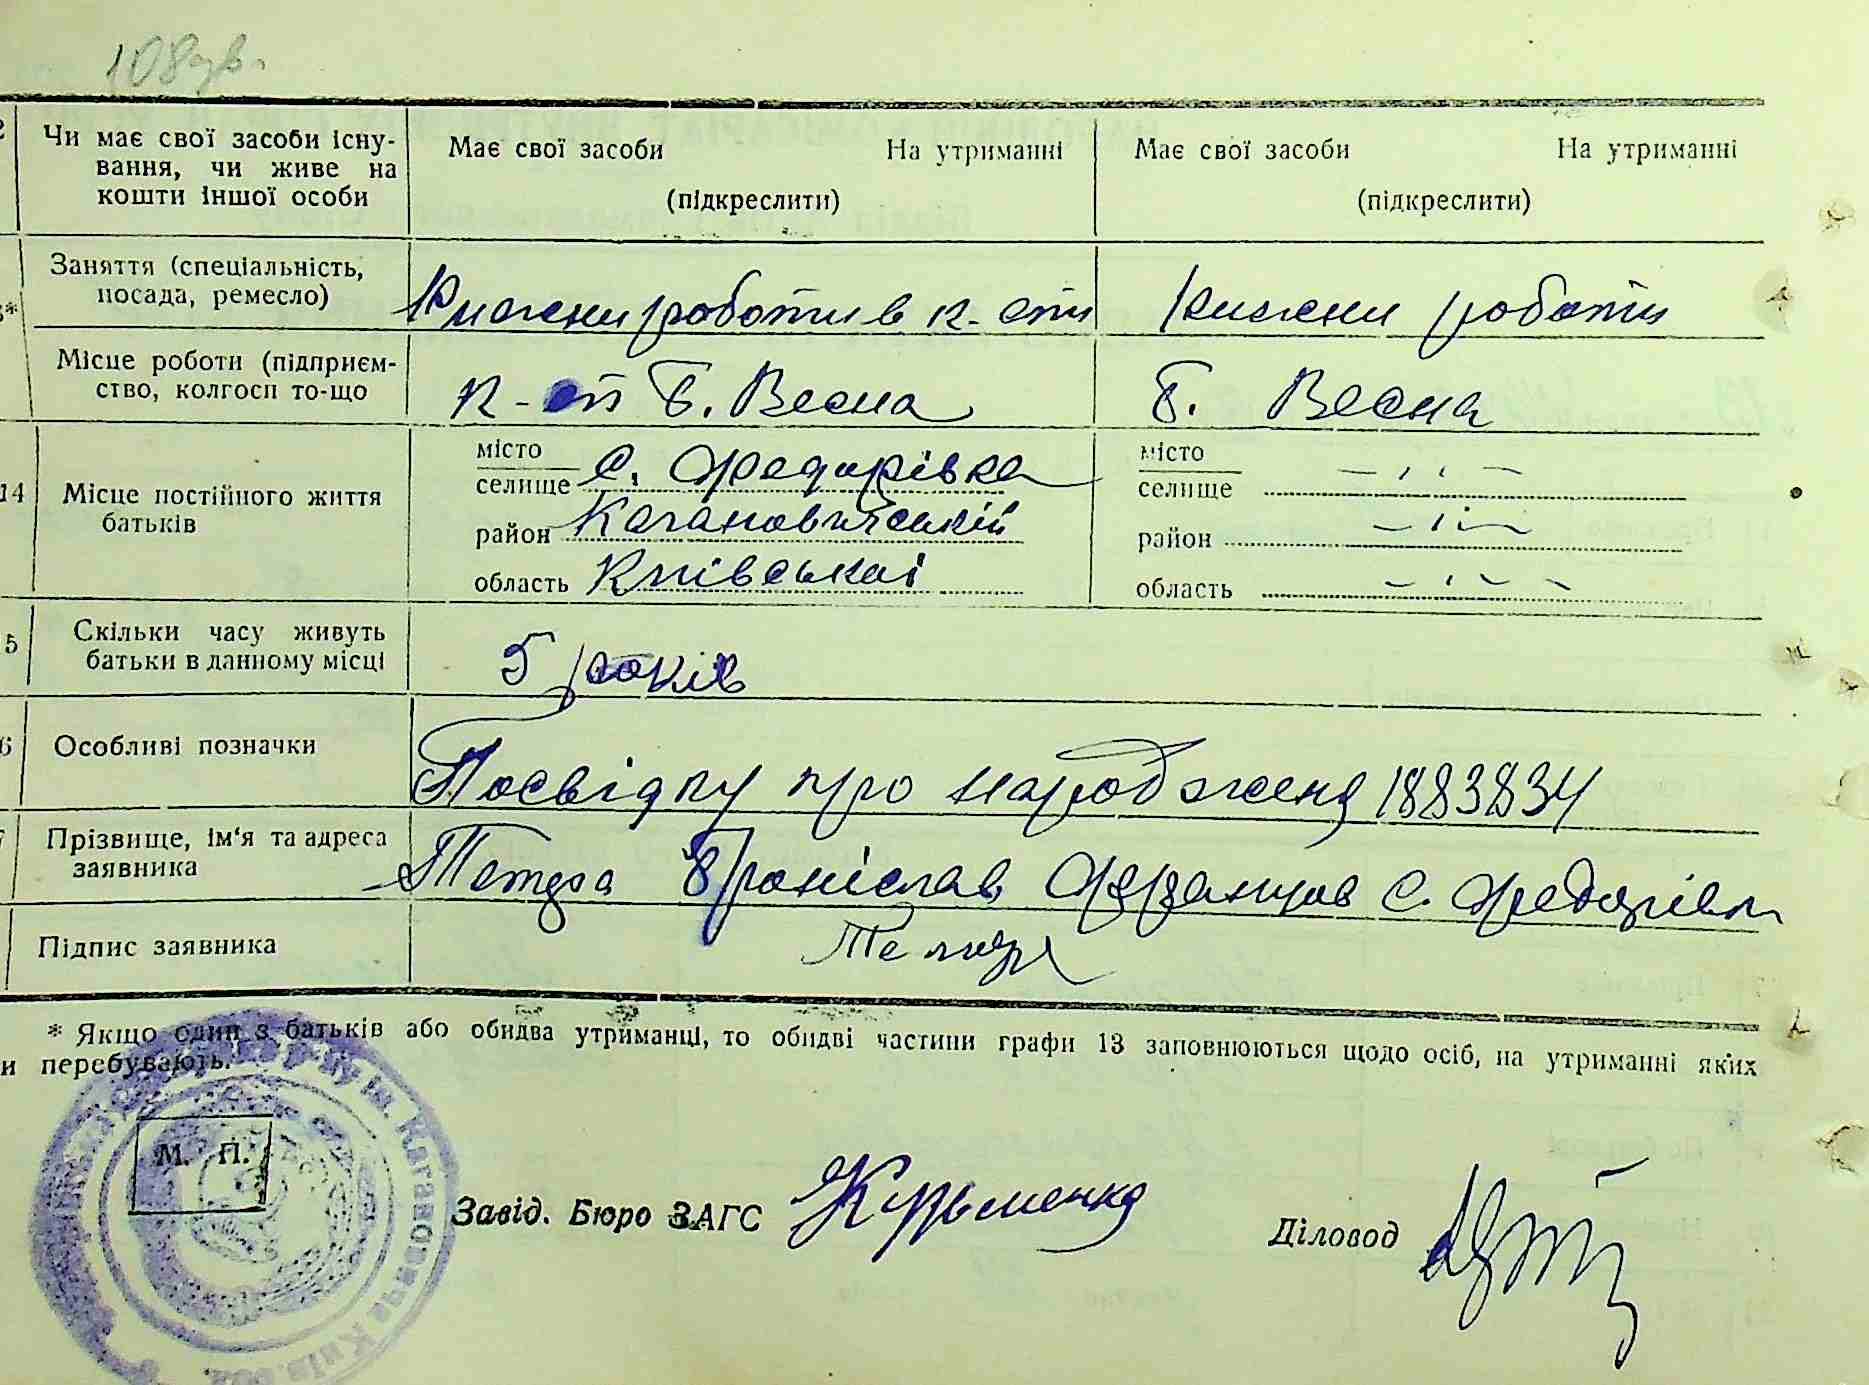 108 зв.
2 Чи має свої засоби існу-
вання, чи живе на
кошти іншої особи
Має свої засоби На утриманні
(підкреслити)
Має свої засоби На утриманні
(підкреслити)
3* Заняття (спеціальність,
посада, ремесло)
роботи в к-спи
роботи
Місце роботи (підприєм-
ство, колгосп то-що
к-сп Б. Весна
Б. Весна
14 Місце постійного життя
батьків
місто
селище с. Федорівка
район Кагановичський
область Київської
місто
селище — ,, —
район — ,, —
область — ,, —
5 Скільки часу живуть
батьки в данному місці
5 років
6 Особливі позначки
Посвідку про народження 1883834
7 Прізвище, ім'я та адреса
заявника
Броніслав с. Федорівка
Підпис заявника
* Якщо один з батьків або обидва утриманці, то обидві частини графи 13 заповнюються щодо осіб, на утриманні яких
и перебувають.
ім. Кагановича Київ. обл.
М. П.
Завід. Бюро ЗАГС Кузьменко
Діловод